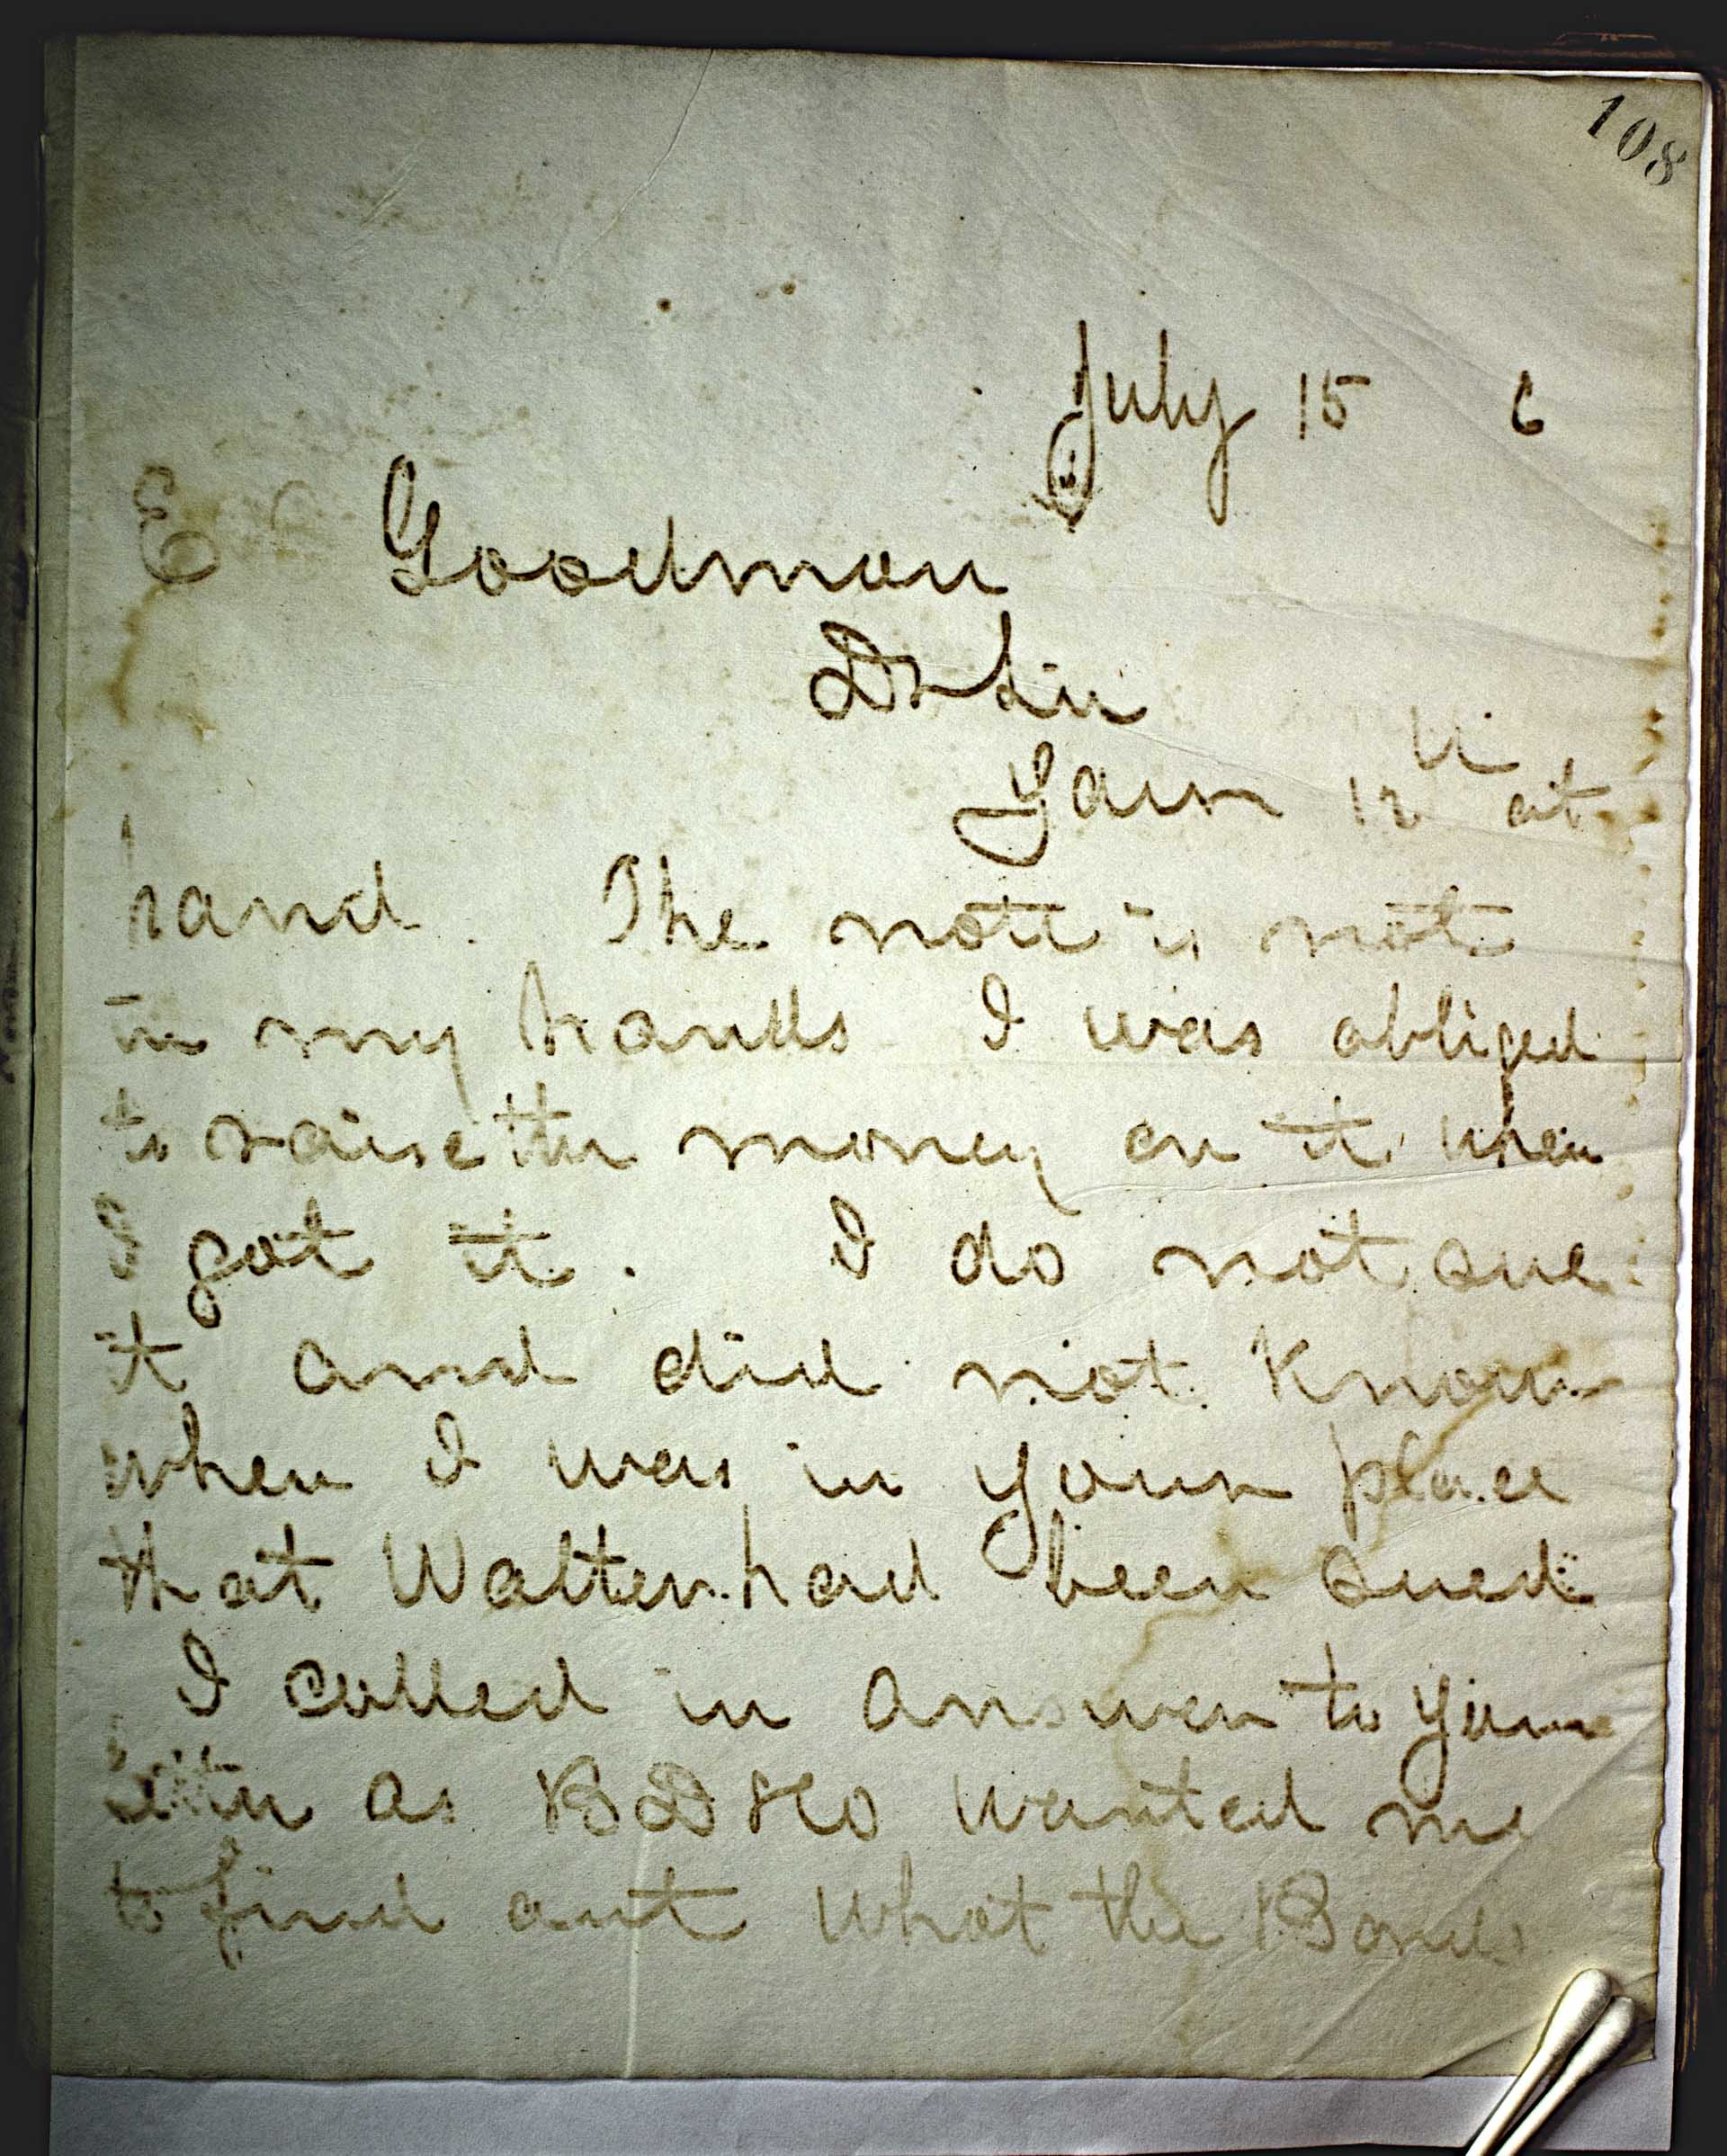 108
July 15 6
E Goodman
Dr Sir
Your 12th at
hand. The note is not
in my hands I was obliged
to raise the money on it when
I got it. I do not sue
it and did not know
when I was in your place
that Walter had been sued
I called in answer to your
as B D & Co wanted me
to find out what the Bond